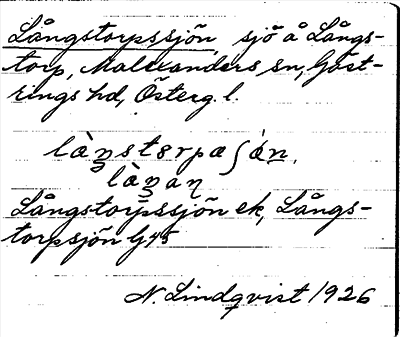 Långstorpssjön, sjö å Långs-
torp, Malexanders sn, Göst-
rings hd, Österg. l.
làŋstərpaʃə́n,
làŋaŋ
Långstorpssjön ek, Långs-
torpsjön G45
N. Lindqvist 1926